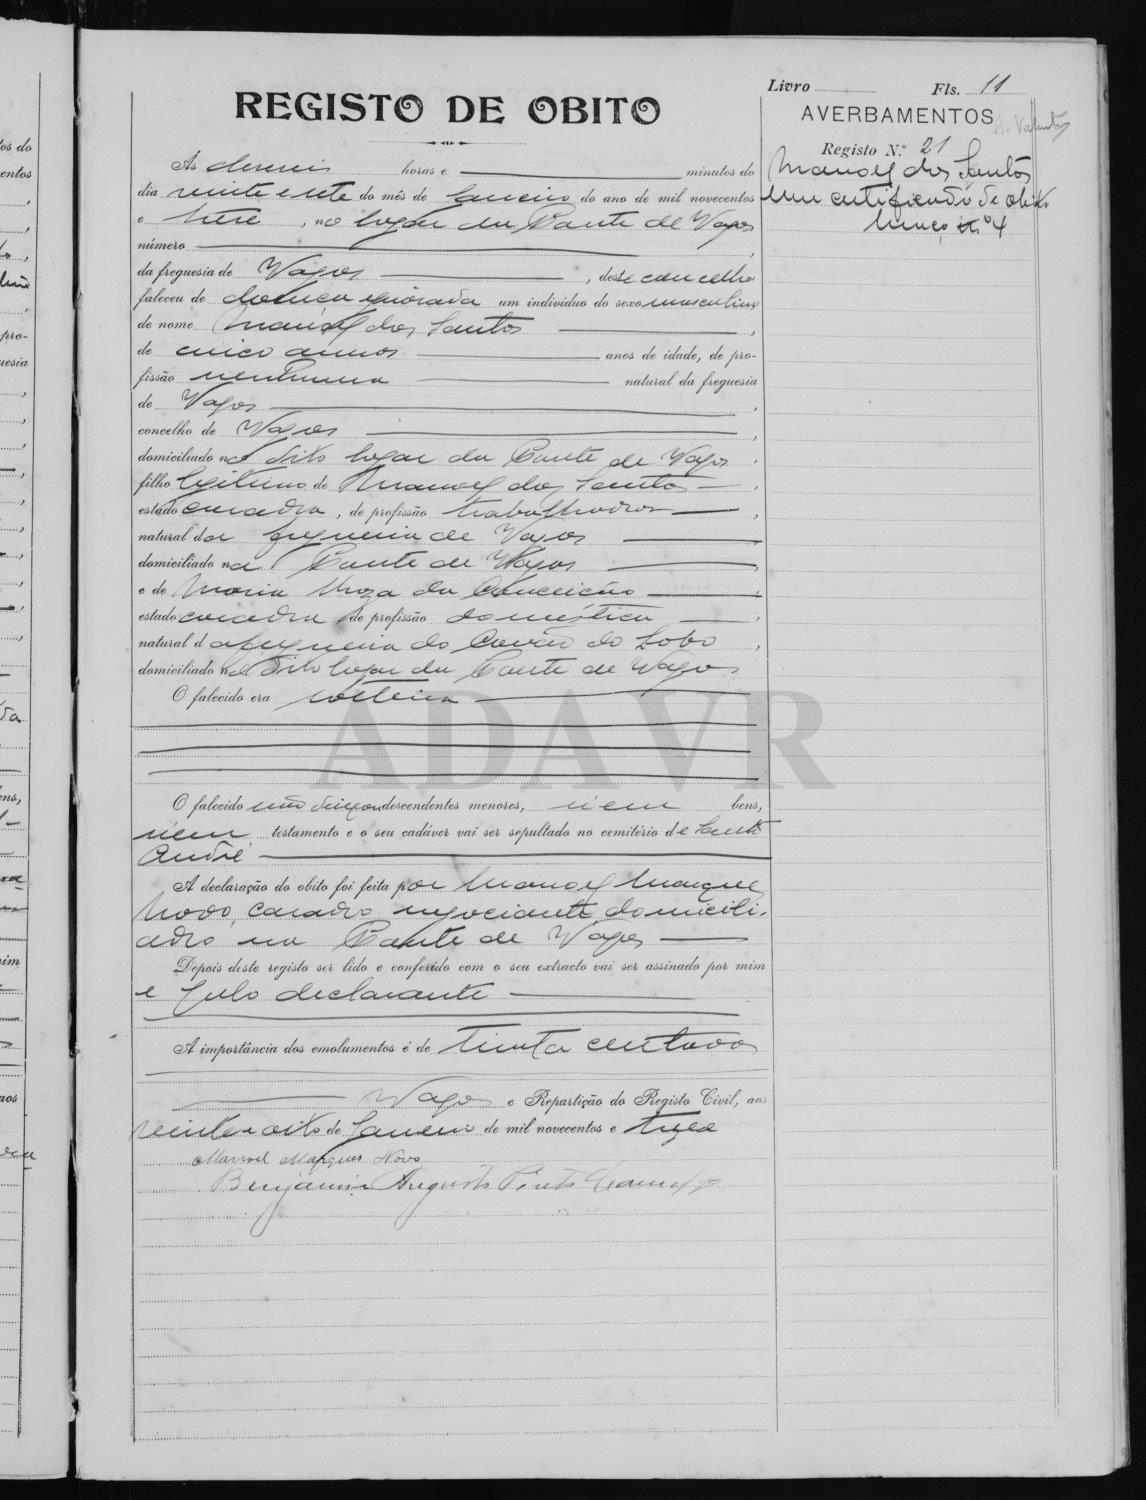 Livro Fls. 11
REGISTO DE OBITO
AVERBAMENTOS
Registo N.º 21
Manoel dos Santos
Tem certificado de obito
maço n.º 4
Ás dezeseis horas e minutos do
dia vinte e sete do mês de Janeiro do ano de mil novecentos
e treze, no logar da Ponte de Vagos
número
da freguesia de Vagos, deste concelho
faleceu de doença ignorada um individuo do sexo masculino
de nome Manoel dos Santos,
de cinco annos anos de idade, de pro-
fissão nenhuma natural da freguesia
de Vagos,
concelho de Vagos,
domiciliado no dito logar da Ponte de Vagos,
filho legitimo de Manoel dos Santos,
estado casado, de profissão trabalhador,
natural da freguesia de Vagos
domiciliado na Ponte de Vagos,
e de Maria Roza da Conceição,
estado casada de profissão domestica,
natural da freguesia do Covão do Lobo,
domiciliado no dito logar da Ponte de Vagos.
O falecido era solteiro
O falecido não deixou descendentes menores, nem bens,
nem testamento e o seu cadáver vai ser sepultado no cemitério de Santo
André
A declaração do obito foi feita por Manoel Marques
Novo, casado, negociante, domicili-
ado na Ponte de Vagos
Depois deste registo ser lido e conferido com o seu extracto vai ser assinado por mim
e pelo declarante
A importância dos emolumentos é de trinta centavos
Vagos e Repartição do Registo Civil, aos
vinte e oito de Janeiro de mil novecentos e treze
Manoel Marques Novo
Benjamin Augusto Pinto
ADAVR